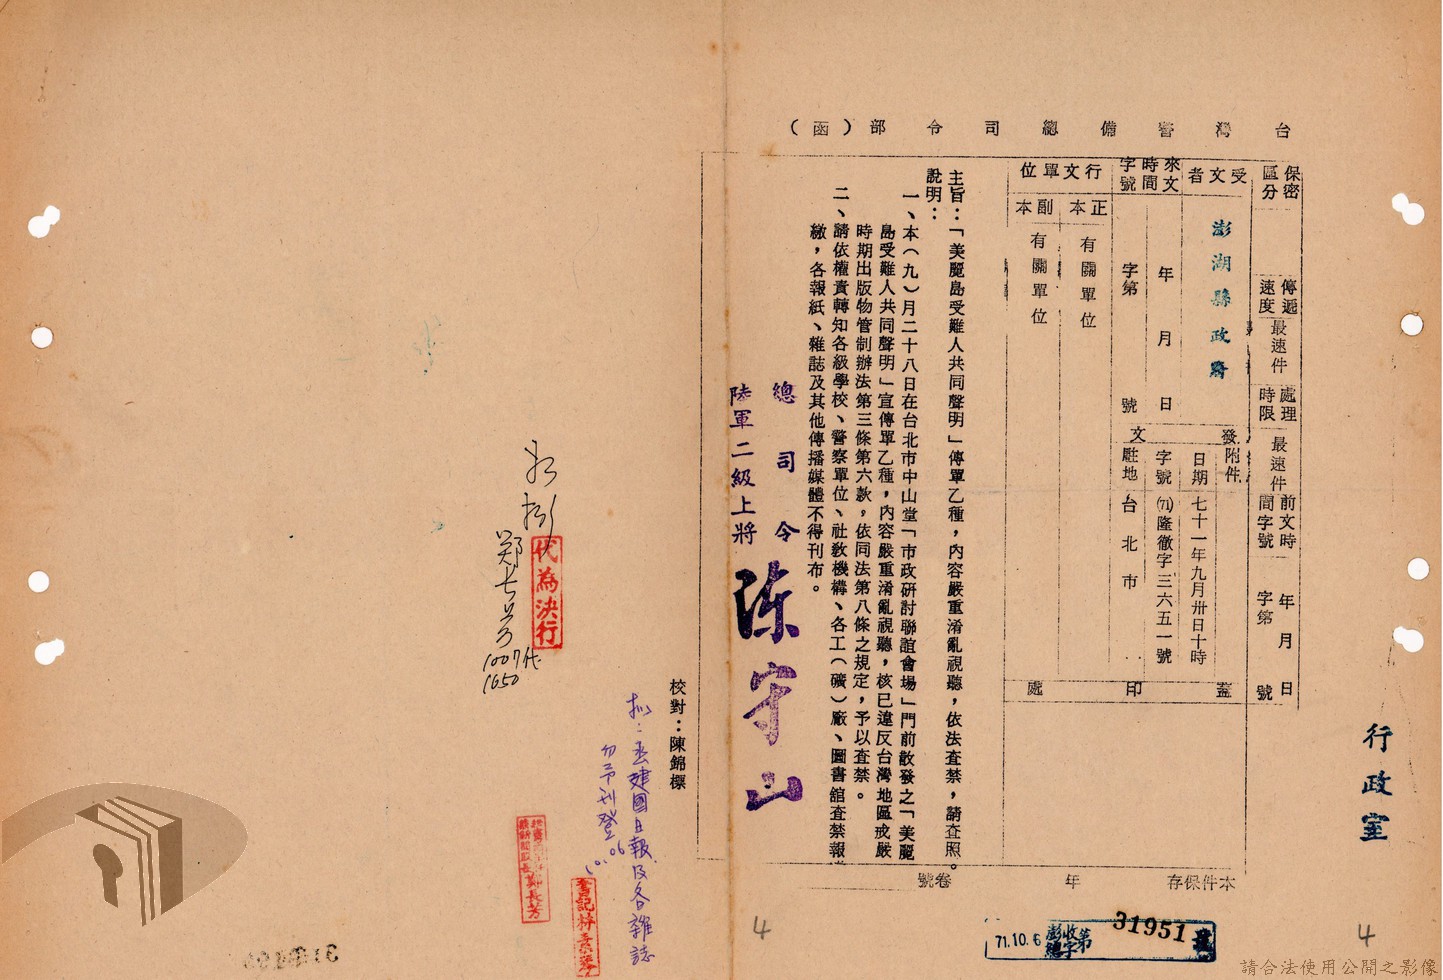 台灣警備總司令部（函）
保密區分
傳遞速度
最速件
處理時限
最速件
前文時間字號
年 月 日
字第 號
受文者
澎湖縣政府
來文時間字號
年 月 日
字第 號
發文
附件
日期
七十一年九月卅日十時
字號
(71)隆徹字三六五一號
駐地
台北市
行文單位
正本
有關單位
副本
有關單位
蓋印處
主旨：「美麗島受難人共同聲明」傳單乙種，內容嚴重淆亂視聽，依法查禁，請查照。
說明：
一、本（九）月二十八日在台北市中山堂「市政研討聯誼會場」門前散發之「美麗
島受難人共同聲明」宣傳單乙種，內容嚴重淆亂視聽，核已違反台灣地區戒嚴
時期出版物管制辦法第三條第六款，依同法第八條之規定，予以查禁。
二、請依權責轉知各級學校、警察單位、社教機構、各工（礦）廠、圖書舘查禁報
繳，各報紙、雜誌及其他傳播媒體不得刊布。
總司令
陸軍二級上將 陳守山
校對：陳錦標
本件保存 年 卷號
行政室
71.10.6
澎收
總字第
31951
號
4
4
建國日報及各雜誌
勿予刊登
10.06
代為決行
鄭長芳
1007
1650
請合法使用公開之影像